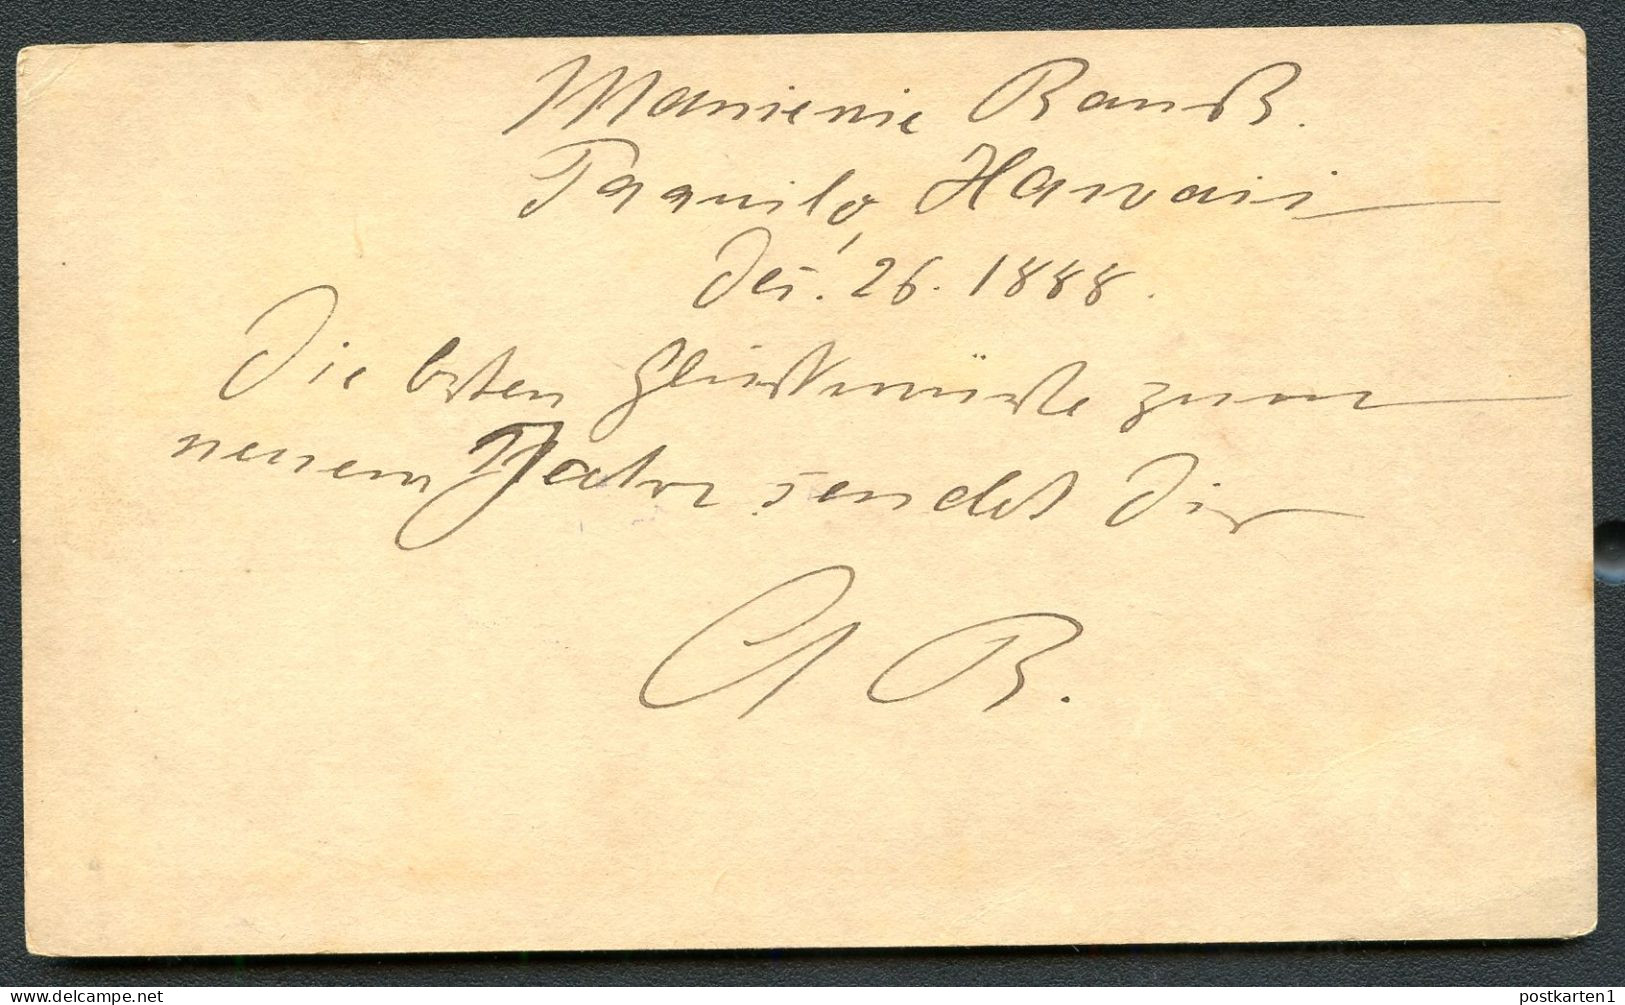 Manienie Ranch.
Paauilo, Hawaii
Dec. 26. 1888.
Die besten Glückwünsche zum
neuen Jahre sendet Dir
A B.
postkarten1